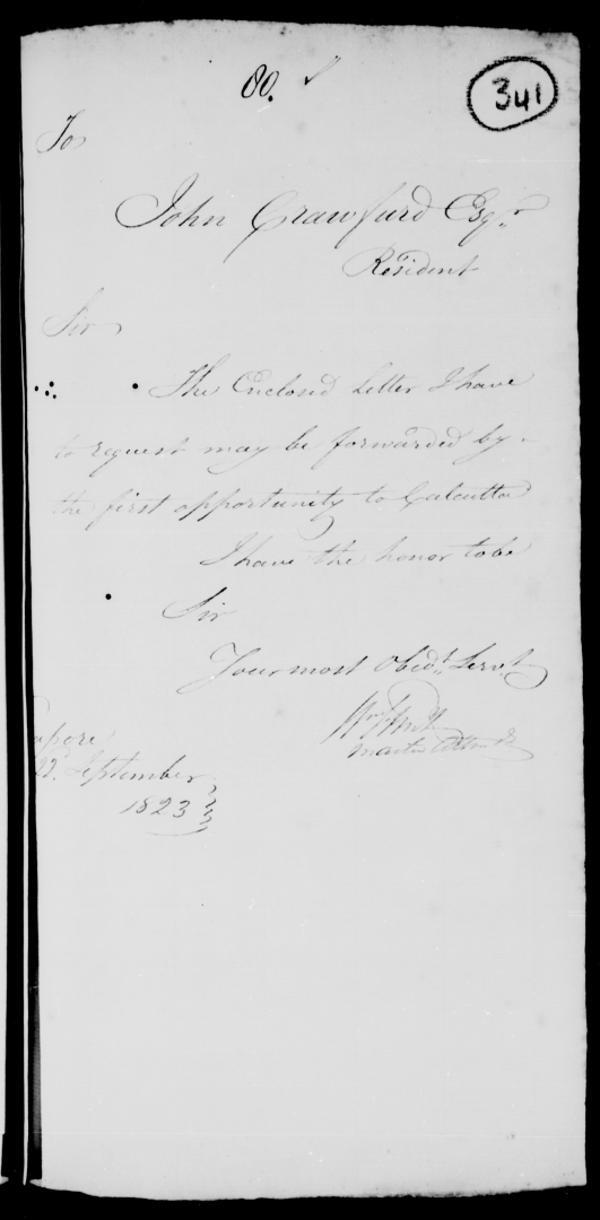 80.
341
To
John Crawfurd Esqr
Resident
Sir
The Enclosed Letter I have
to request may be forwarded by
the first opportunity to Calcutta
I have the honor to be
Sir
Your most Obedt. Servt
apore
22d. September
1823